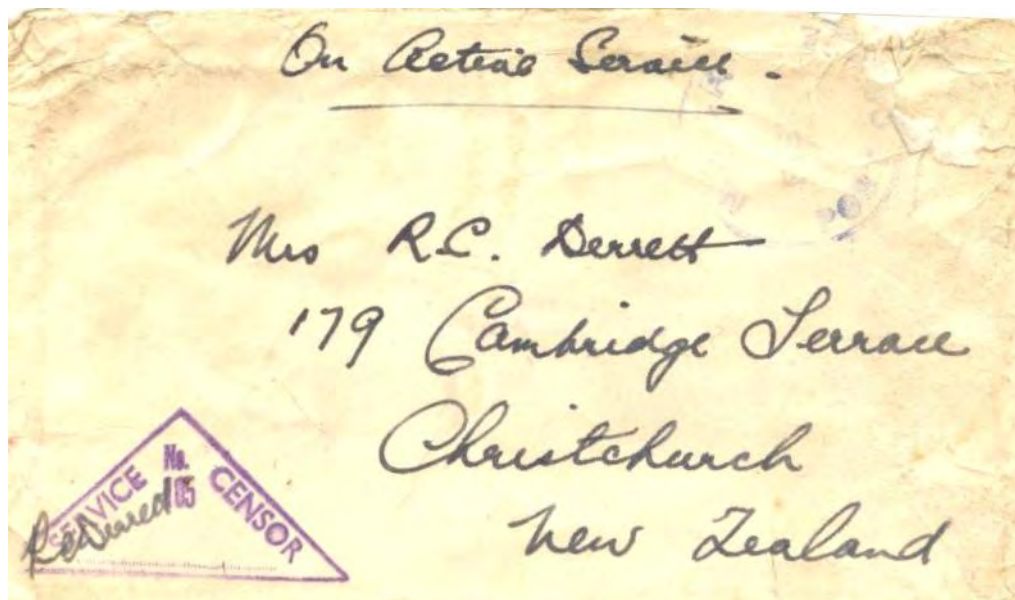 On Active Service.
Mrs R.C. Derrett
179 Cambridge Terrace
Christchurch
New Zealand
SERVICE No. CENSOR